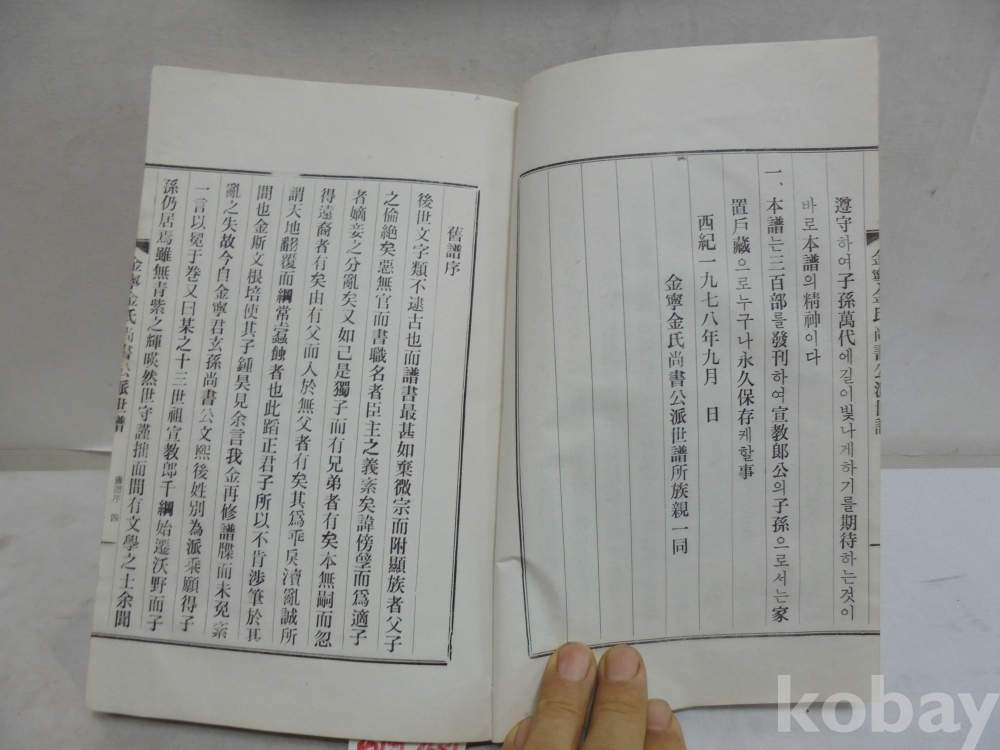 遵守하여子孫萬代에길이빛나게하기를期待하는것이
바로本譜의精神이다
一、本譜는三百部를發刊하여宣教郞公의子孫으로서는家
置戶藏으로누구나永久保存케할事
西紀一九七八年九月 日
金寧金氏尚書公派世譜所族親一同
舊譜序
後世文字類不逮古也而譜書最甚如棄微宗而附顯族者父子
之倫絶矣惡無官而書職名者臣主之義紊矣諱傍孼而爲適子
者嫡妾之分亂矣又如己是獨子而有兄弟者有矣本無嗣而忽
得遠裔者有矣由有父而入於無父者有矣其爲乖戾瀆亂誠所
謂天地翻覆而綱常蠧蝕者也此蹈正君子所以不肯涉筆於其
間也金斯文根培使其子鍾昊見余言我金再修譜牒而未免紊
亂之失故今自金寧君玄孫尚書公文熙後姓別為派乘願得子
一言以冕于卷又曰某之十三世祖宣教郞千綱始遷沃野而子
孫仍居焉雖無青紫之輝暎然世守謹拙而間有文學之士余聞
金寧金氏尚書公派世譜
舊譜序 四
kobay